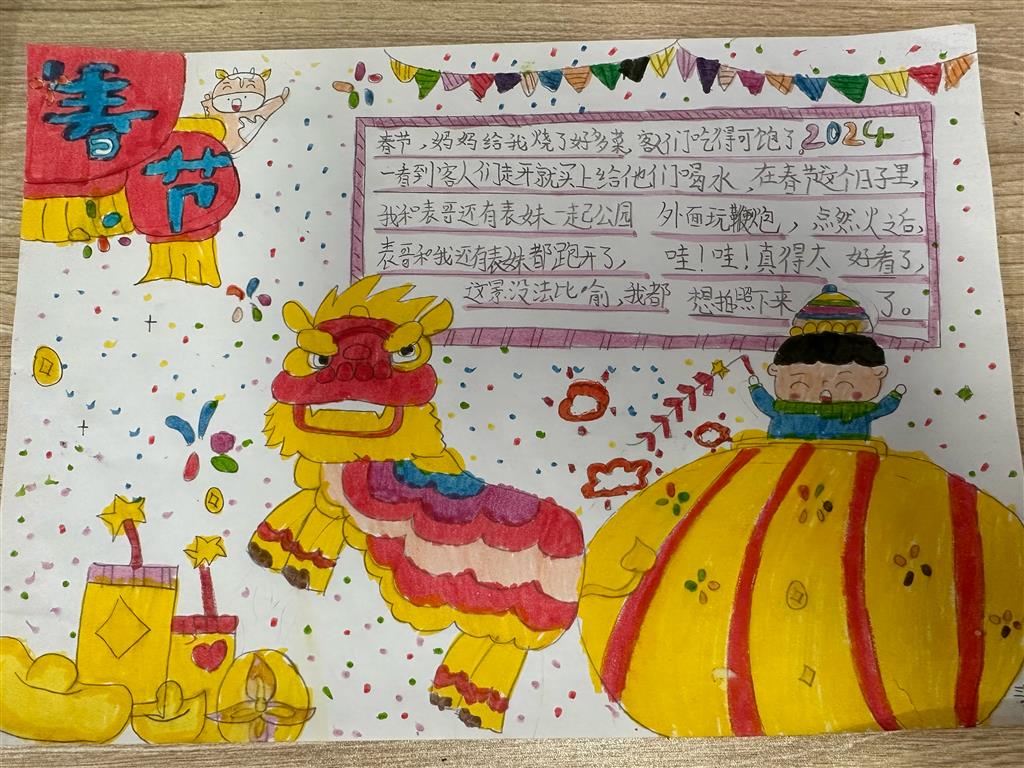 春节
春节，妈妈给我烧了好多菜，客人们吃得可饱了。2024
一看到客人们走开就买上给他们喝水，在春节这个日子里，
我和表哥还有表妹一起己公园 外面玩鞭炮，点然火之后，
表哥和我还有表妹都跑开了， 哇！哇！真得太 好看了，
这景没法比喻，我都 想拍照下来 了。